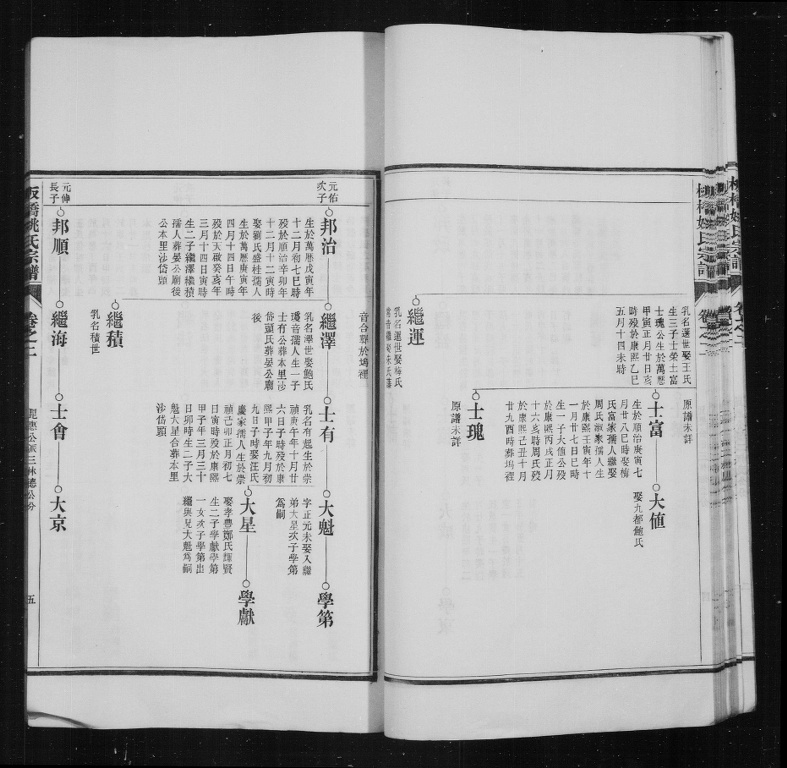 乳名選世娶王氏
生三子士榮士富
士瑰公生於萬歷
甲寅正月廿日亥
時歿於康熙乙巳
五月十四未時
原譜未詳
士富
生於順治庚寅七
月廿八巳時娶梅
氏富家孺人繼娶
周氏淑家孺人生
於康熙壬寅年十
一月廿七日巳時
生一子大值公歿
於康熙丙戌正月
十六亥時周氏歿
於康熙己丑十月
廿九酉時葬塢裡
大值
娶九都鮑氏
士瑰
原譜未詳
繼運
乳名運世娶梅氏
音合葬於塢裡
元佑
次子
邦治
生於萬歷戊寅年
十二月初七巳時
歿於順治辛卯年
十二月十二寅時
娶劉氏盛桂孺人
生於萬歷庚寅年
四月十四日午時
歿於天啟癸亥年
三月十四日寅時
生二子繼澤繼積
孺人葬晏公廟後
公本里沙岱頭
繼澤
乳名澤世娶鮑氏
瓊音孺人生一子
士有公葬本里沙
岱頭氏葬晏公廟
後
士有
乳名有起生於崇
禎庚午年十月廿
六日子時歿於康
熙甲子年九月初
九日子時娶汪氏
慶家孺人生於崇
禎己卯正月初七
日寅時歿於康熙
甲子年三月三十
日卯時生二子大
魁大星合葬本里
沙岱頭
大魁
字正元未娶入繼
弟大星次子學第
為嗣
學第
大星
娶孝豐鄭氏輝賢
生二子學獻學第
一女次子學第出
繼與兄大魁為嗣
學獻
繼積
乳名積世
元伸
長子
邦順
繼海
士會
大京
板橋姚氏宗譜
卷之二
五